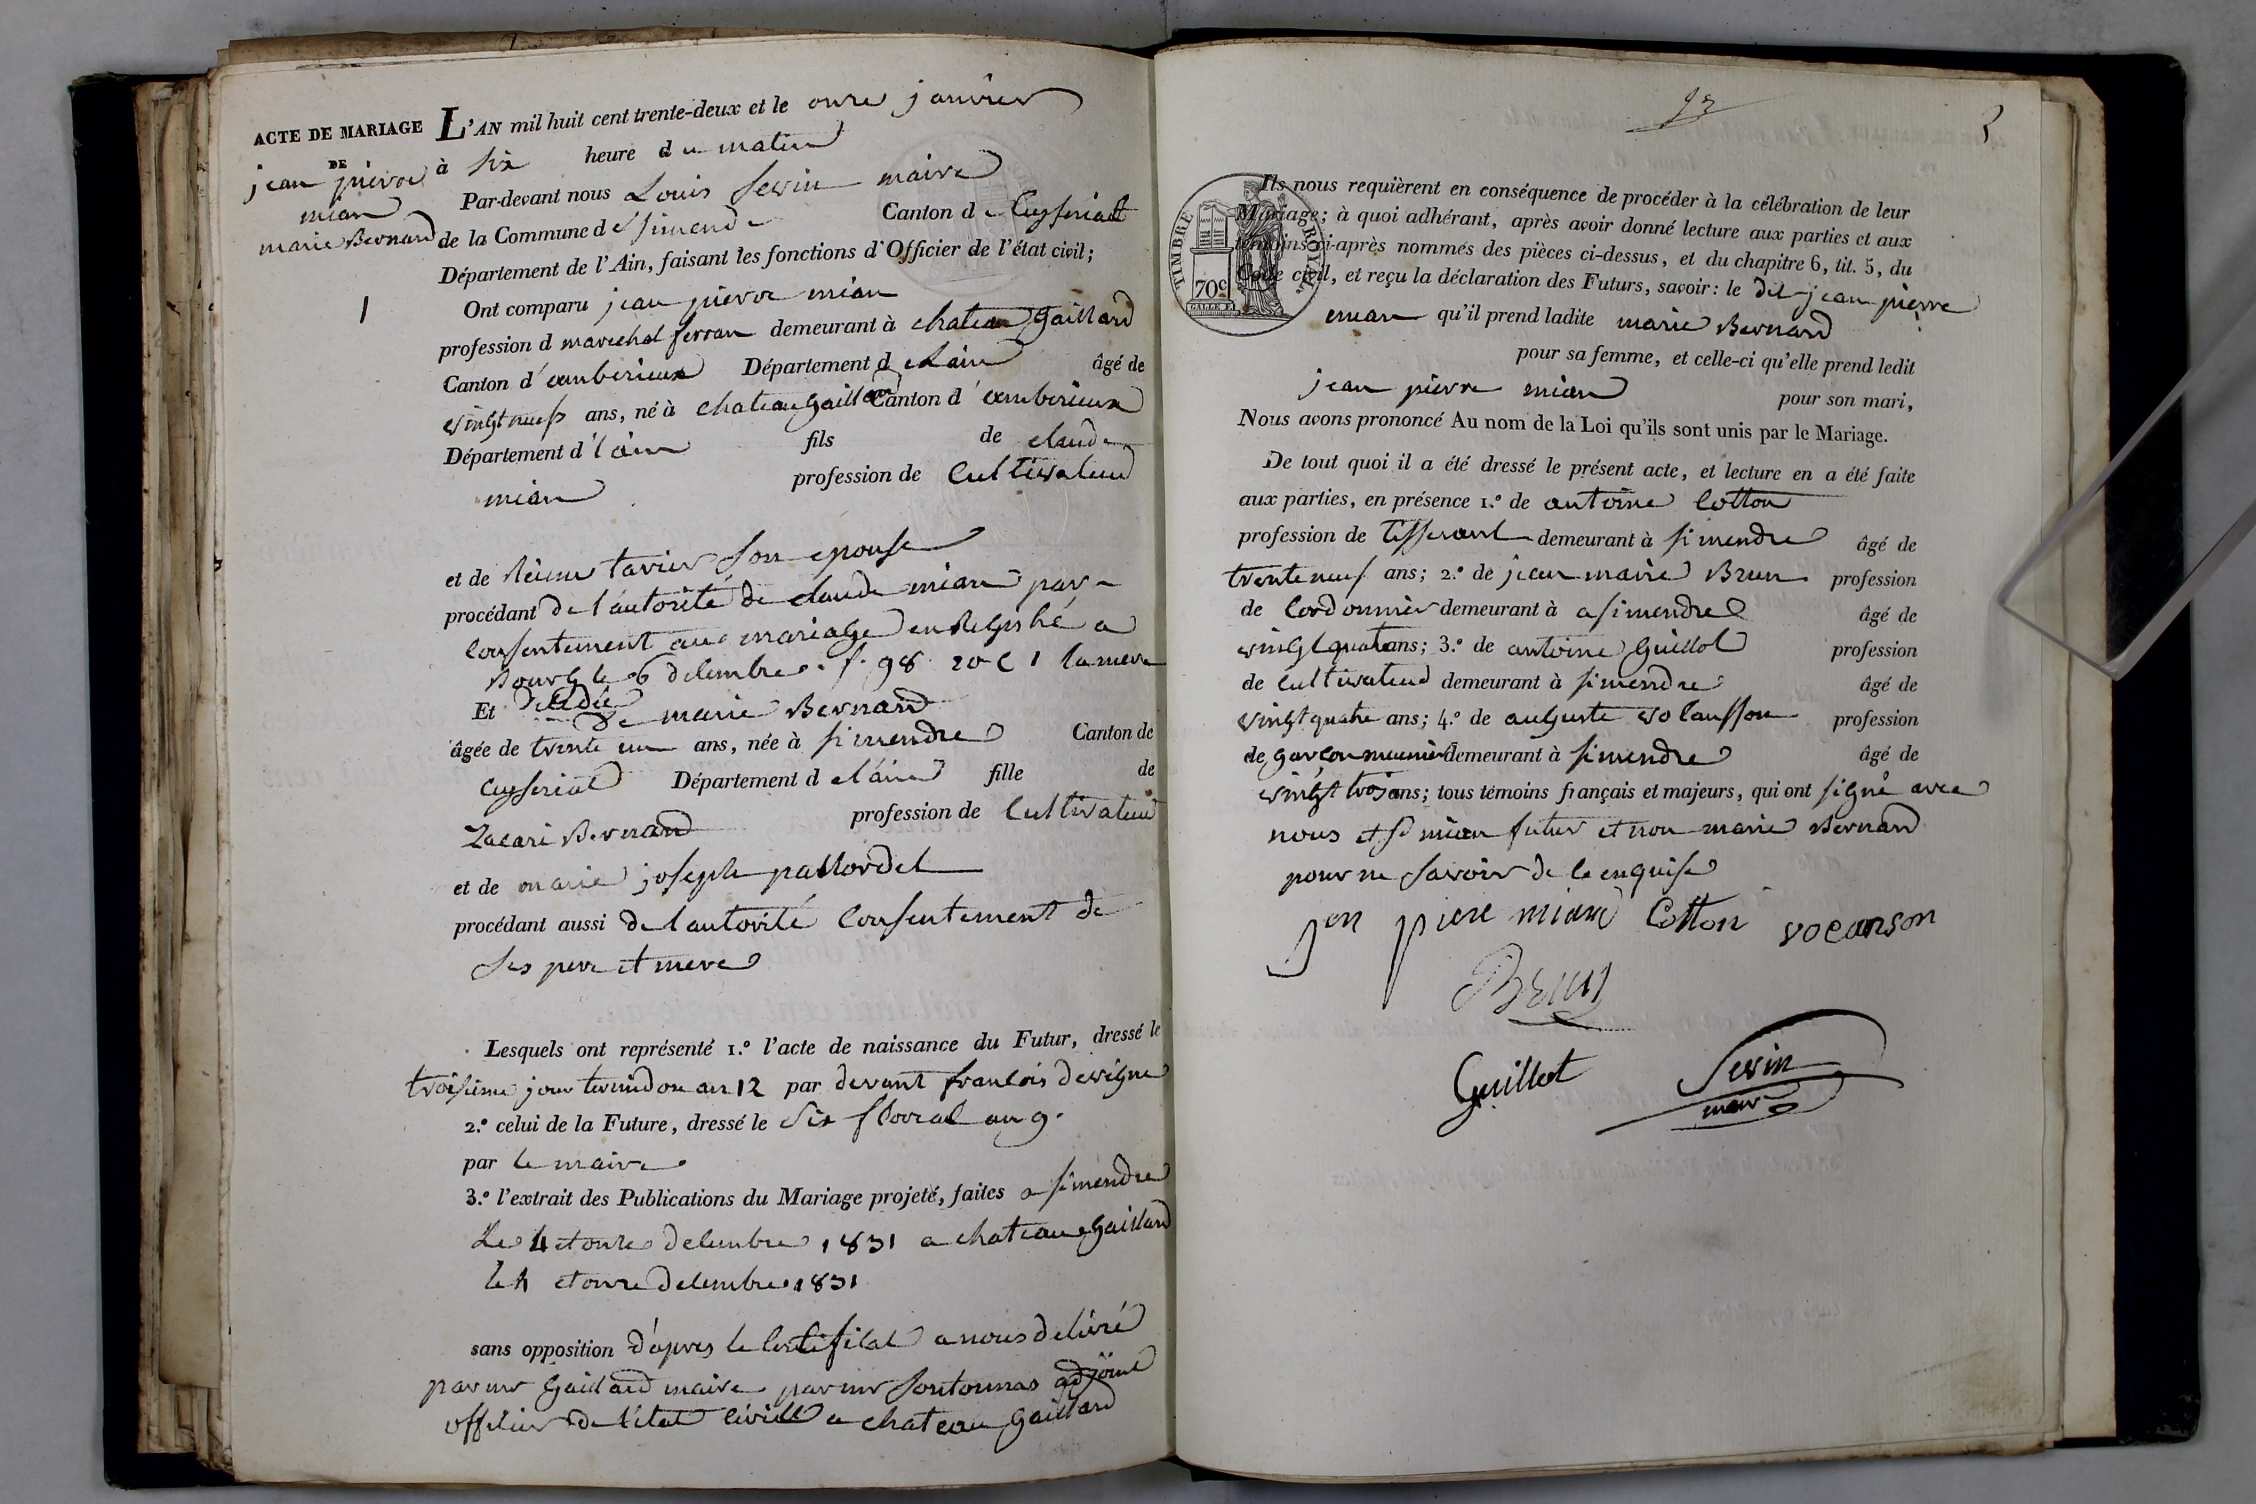 ACTE DE MARIAGE
DE
jean pierre
mian
marie Bernard
1
L'AN mil huit cent trente-deux et le onze janvier
à six heure du matin
Par-devant nous Louis Sevin maire
de la Commune de Simendre Canton de Ceyseriat
Département de l'Ain, faisant les fonctions d'Officier de l'état civil;
Ont comparu jean pierre mian
profession d marechal ferran demeurant à chateau gaillard
Canton d'amberieux Département d elain âgé de
vingt neuf ans, né à chateau gaillard Canton d'amberieux
Département d'lain fils de claude
mian profession de Cultivateur
et de tavier son epouse
procédant de l'autorité de claude mian par
consentement au mariage enregistré a
Bourg le 6 decembre f. 98 lamere
decedée
Et de marie Bernard
âgée de trente un ans, née à simendre Canton de
Ceyseriat Département d el'ain fille de
Zacari Bernard profession de Cultivateur
et de marie joseph pallordet
procédant aussi de l'autorité Consentement de
ses pere et mere
Lesquels ont représenté 1.º l'acte de naissance du Futur, dressé le
troisieme jour termidor an 12 par devant francois devigne
2.º celui de la Future, dressé le six floreal an 9.
par le maire
3.º l'extrait des Publications du Mariage projeté, faites a simendre
Le 4 et onze decembre 1831 a chateau gaillard
le 4 et onze decembre 1831
sans opposition d'apres le certificat a nous delivré
par mr Gaillard maire par mr adjoint
officier de l'etat civill a chateau gaillard
Ils nous requièrent en conséquence de procéder à la célébration de leur
Mariage; à quoi adhérant, après avoir donné lecture aux parties et aux
témoins ci-après nommés des pièces ci-dessus, et du chapitre 6, tit. 5, du
Code civil, et reçu la déclaration des Futurs, savoir: le dit jean pierre
mian qu'il prend ladite marie Bernard
pour sa femme, et celle-ci qu'elle prend ledit
jean pierre mian pour son mari,
Nous avons prononcé Au nom de la Loi qu'ils sont unis par le Mariage.
De tout quoi il a été dressé le présent acte, et lecture en a été faite
aux parties, en présence 1.º de antoine Cotton
profession de Tisserant demeurant à simendre âgé de
trente neuf ans; 2.º de jean marie Brun profession
de Cordonnier demeurant à a simendre âgé de
vingt quatre ans; 3.º de antoine Guillot profession
de Cultivateur demeurant à simendre âgé de
vingt quatre ans; 4.º de auguste vocansson profession
de garçon meunier demeurant à simendre âgé de
vingt trois ans; tous témoins français et majeurs, qui ont signé avec
nous et sr mian futur et non marie Bernard
pour ne savoir de ce enquise
jan piere mian Cotton vocanson
Brun
Guillot Sevin
maire
TIMBRE ROYAL
70c